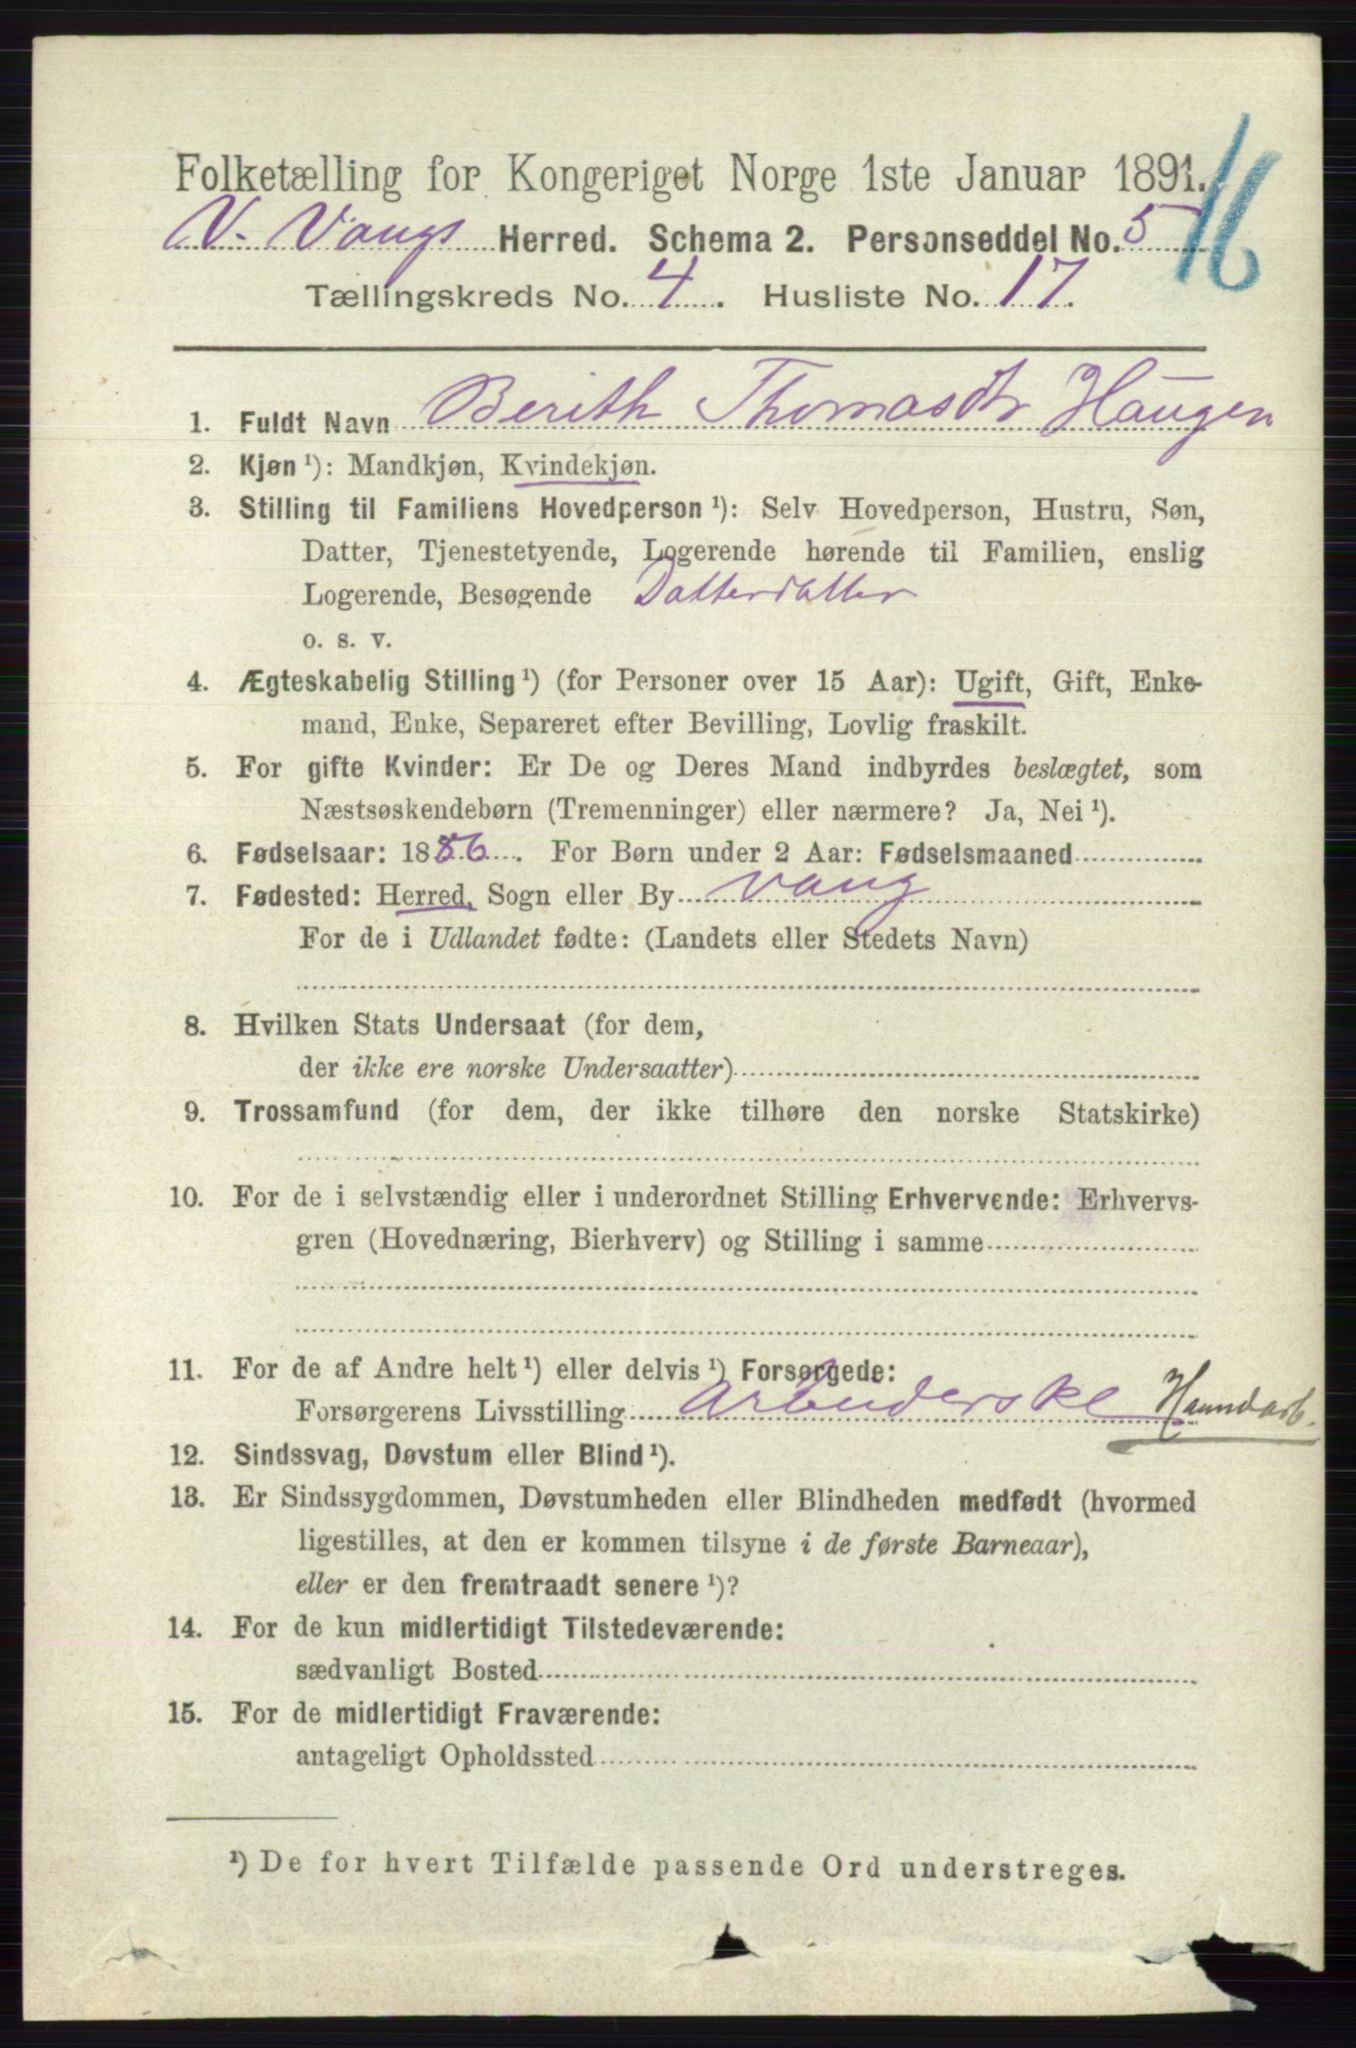 Folketælling for Kongeriget Norge 1ste Januar 1891.
16
V. Vangs Herred. Schema 2. Personseddel No. 5
Tællingskreds No. 4. Husliste No. 17.
1. Fuldt Navn Berith Thomasdtr Haugen
2. Kjøn ¹): Mandkjøn, Kvindekjøn.
3. Stilling til Familiens Hovedperson ¹): Selv Hovedperson, Hustru, Søn,
Datter, Tjenestetyende, Logerende hørende til Familien, enslig
Logerende, Besøgende Datterdatter
o. s. v.
4. Ægteskabelig Stilling ¹) (for Personer over 15 Aar): Ugift, Gift, Enke-
mand, Enke, Separeret efter Bevilling, Lovlig fraskilt.
5. For gifte Kvinder: Er De og Deres Mand indbyrdes beslægtet, som
Næstsøskendebørn (Tremenninger) eller nærmere? Ja, Nei ¹).
6. Fødselsaar: 1886. For Børn under 2 Aar: Fødselsmaaned
7. Fødested: Herred, Sogn eller By Vang
For de i Udlandet fødte: (Landets eller Stedets Navn)
8. Hvilken Stats Undersaat (for dem,
der ikke ere norske Undersaatter)
9. Trossamfund (for dem, der ikke tilhøre den norske Statskirke)
10. For de i selvstændig eller i underordnet Stilling Erhvervende: Erhvervs-
gren (Hovednæring, Bierhverv) og Stilling i samme
11. For de af Andre helt ¹) eller delvis ¹) Forsørgede:
Forsørgerens Livsstilling Arbeiderske Haandarb.
12. Sindssvag, Døvstum eller Blind ¹).
13. Er Sindssygdommen, Døvstumheden eller Blindheden medfødt (hvormed
ligestilles, at den er kommen tilsyne i de første Barneaar),
eller er den fremtraadt senere ¹)?
14. For de kun midlertidigt Tilstedeværende:
sædvanligt Bosted
15. For de midlertidigt Fraværende:
antageligt Opholdssted
¹) De for hvert Tilfælde passende Ord understreges.